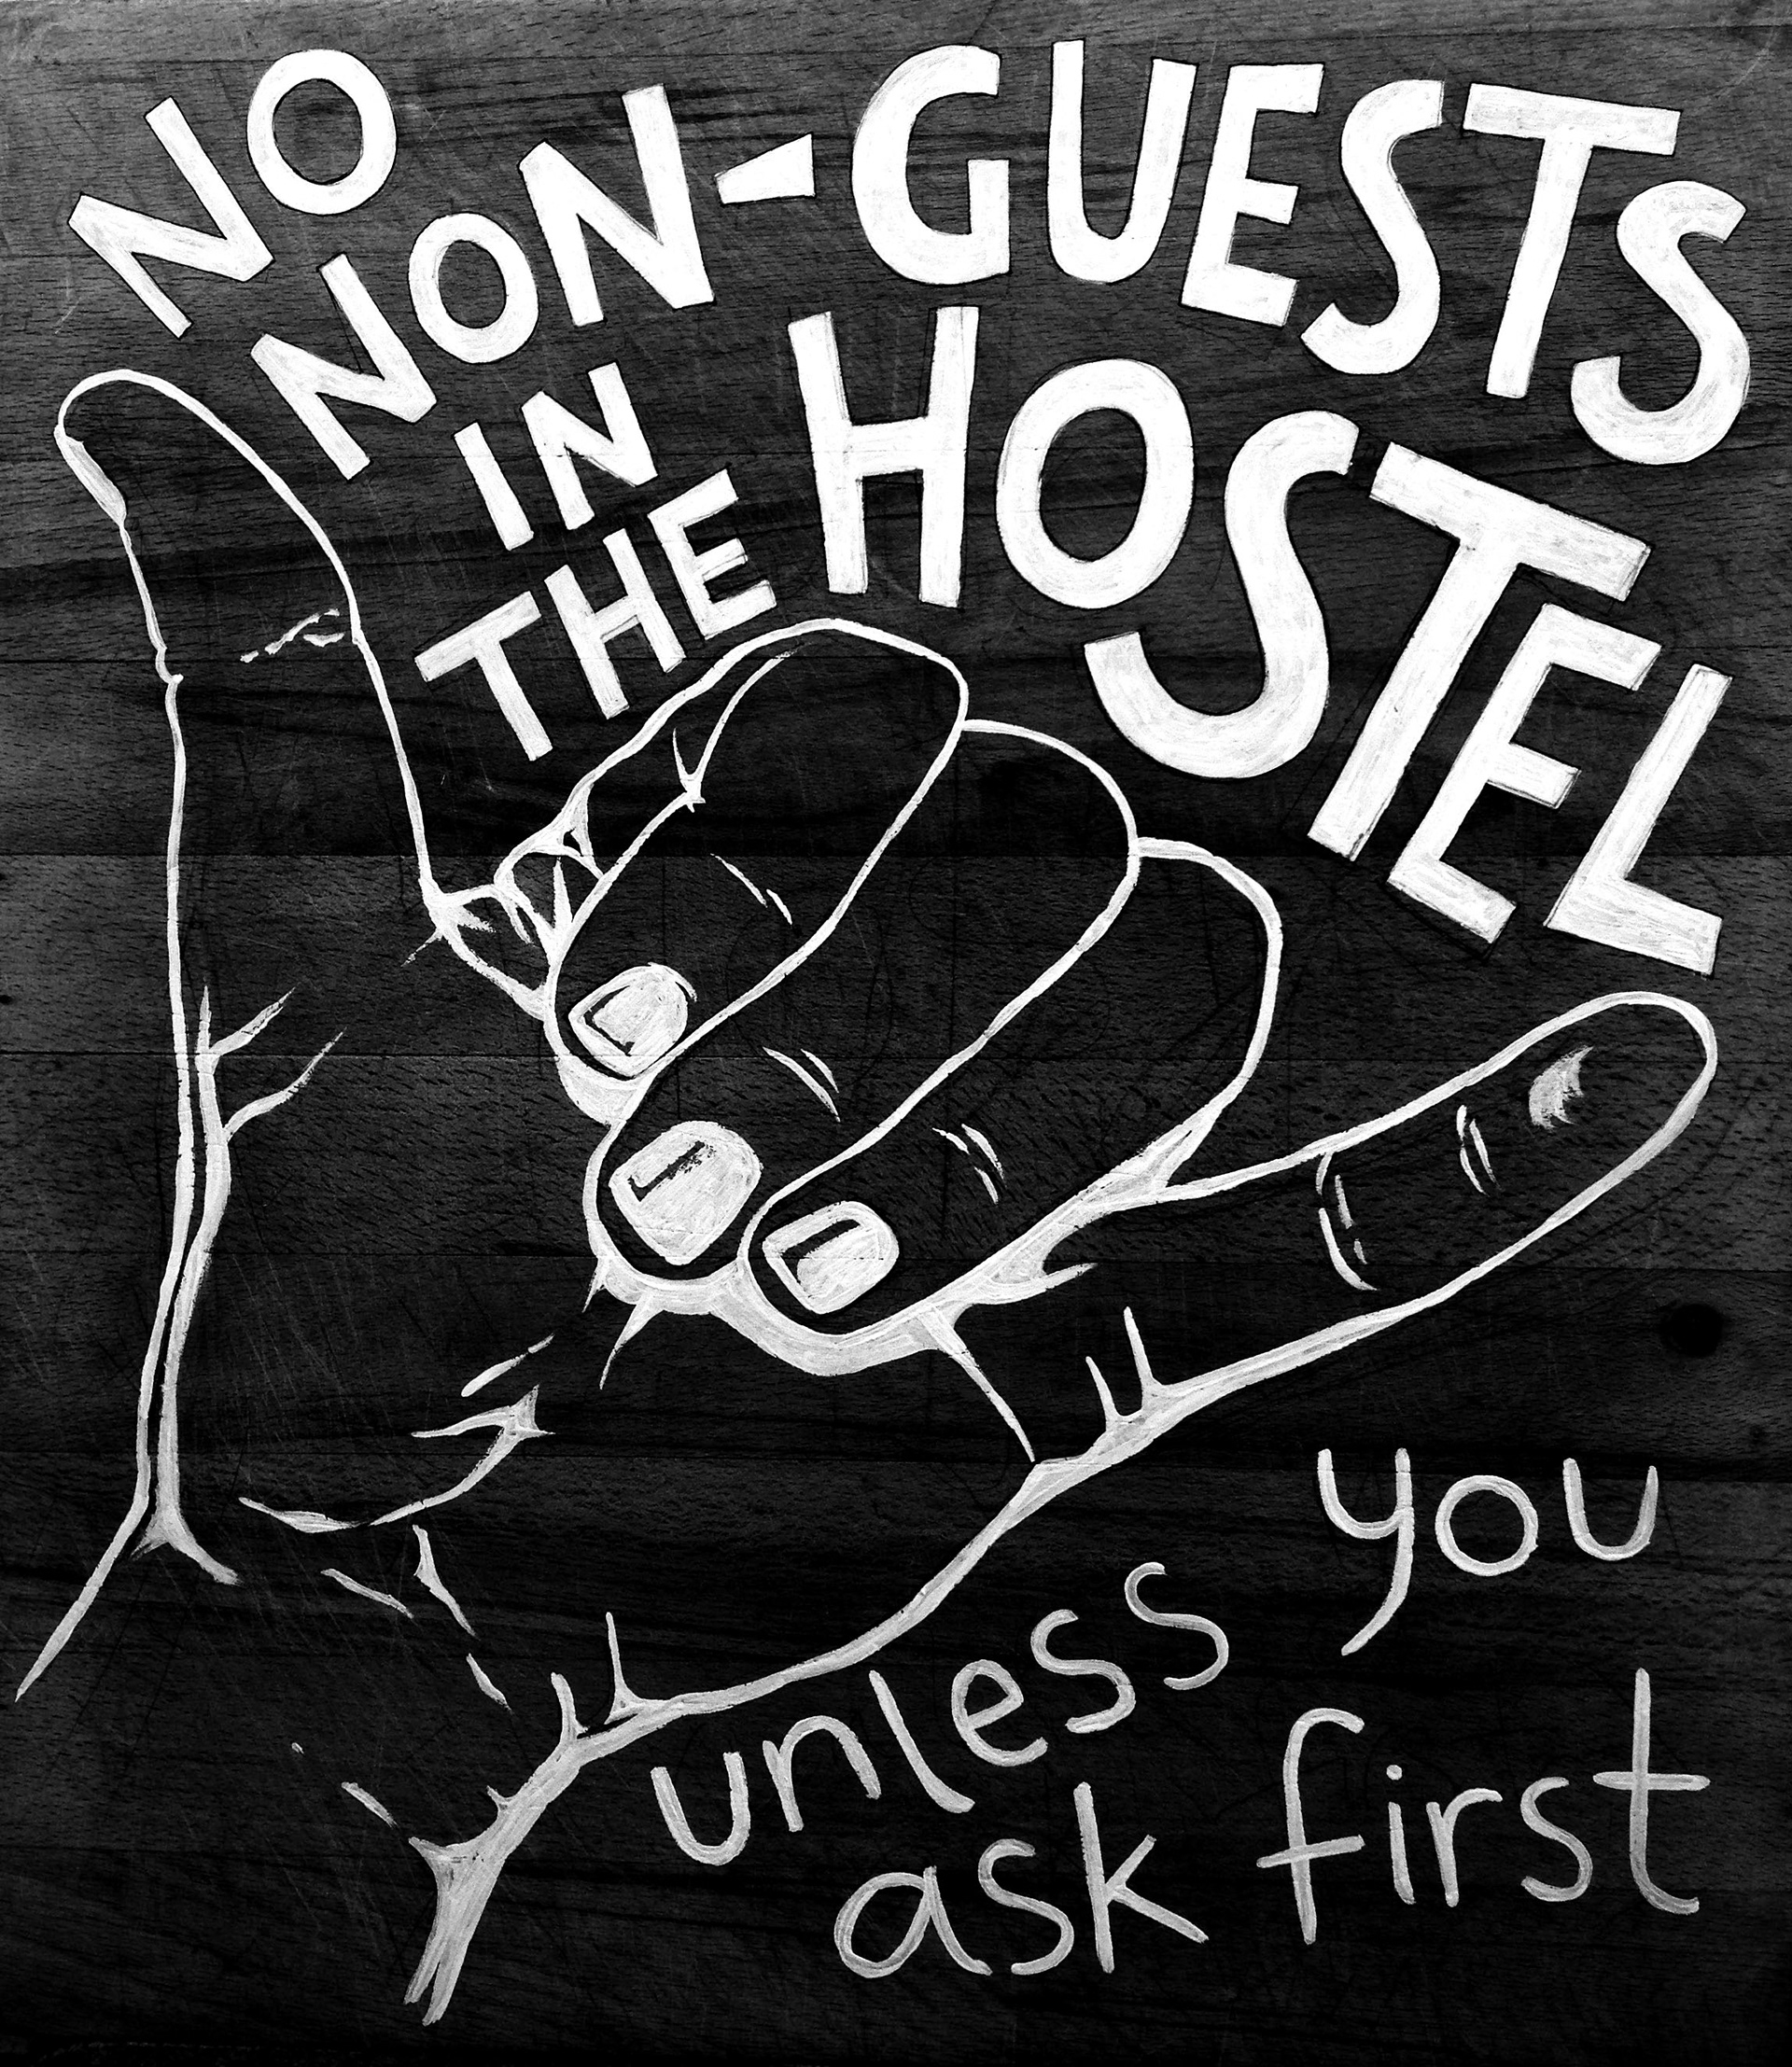 NO
NON-GUESTS
IN
THE HOSTEL
unless you
ask first